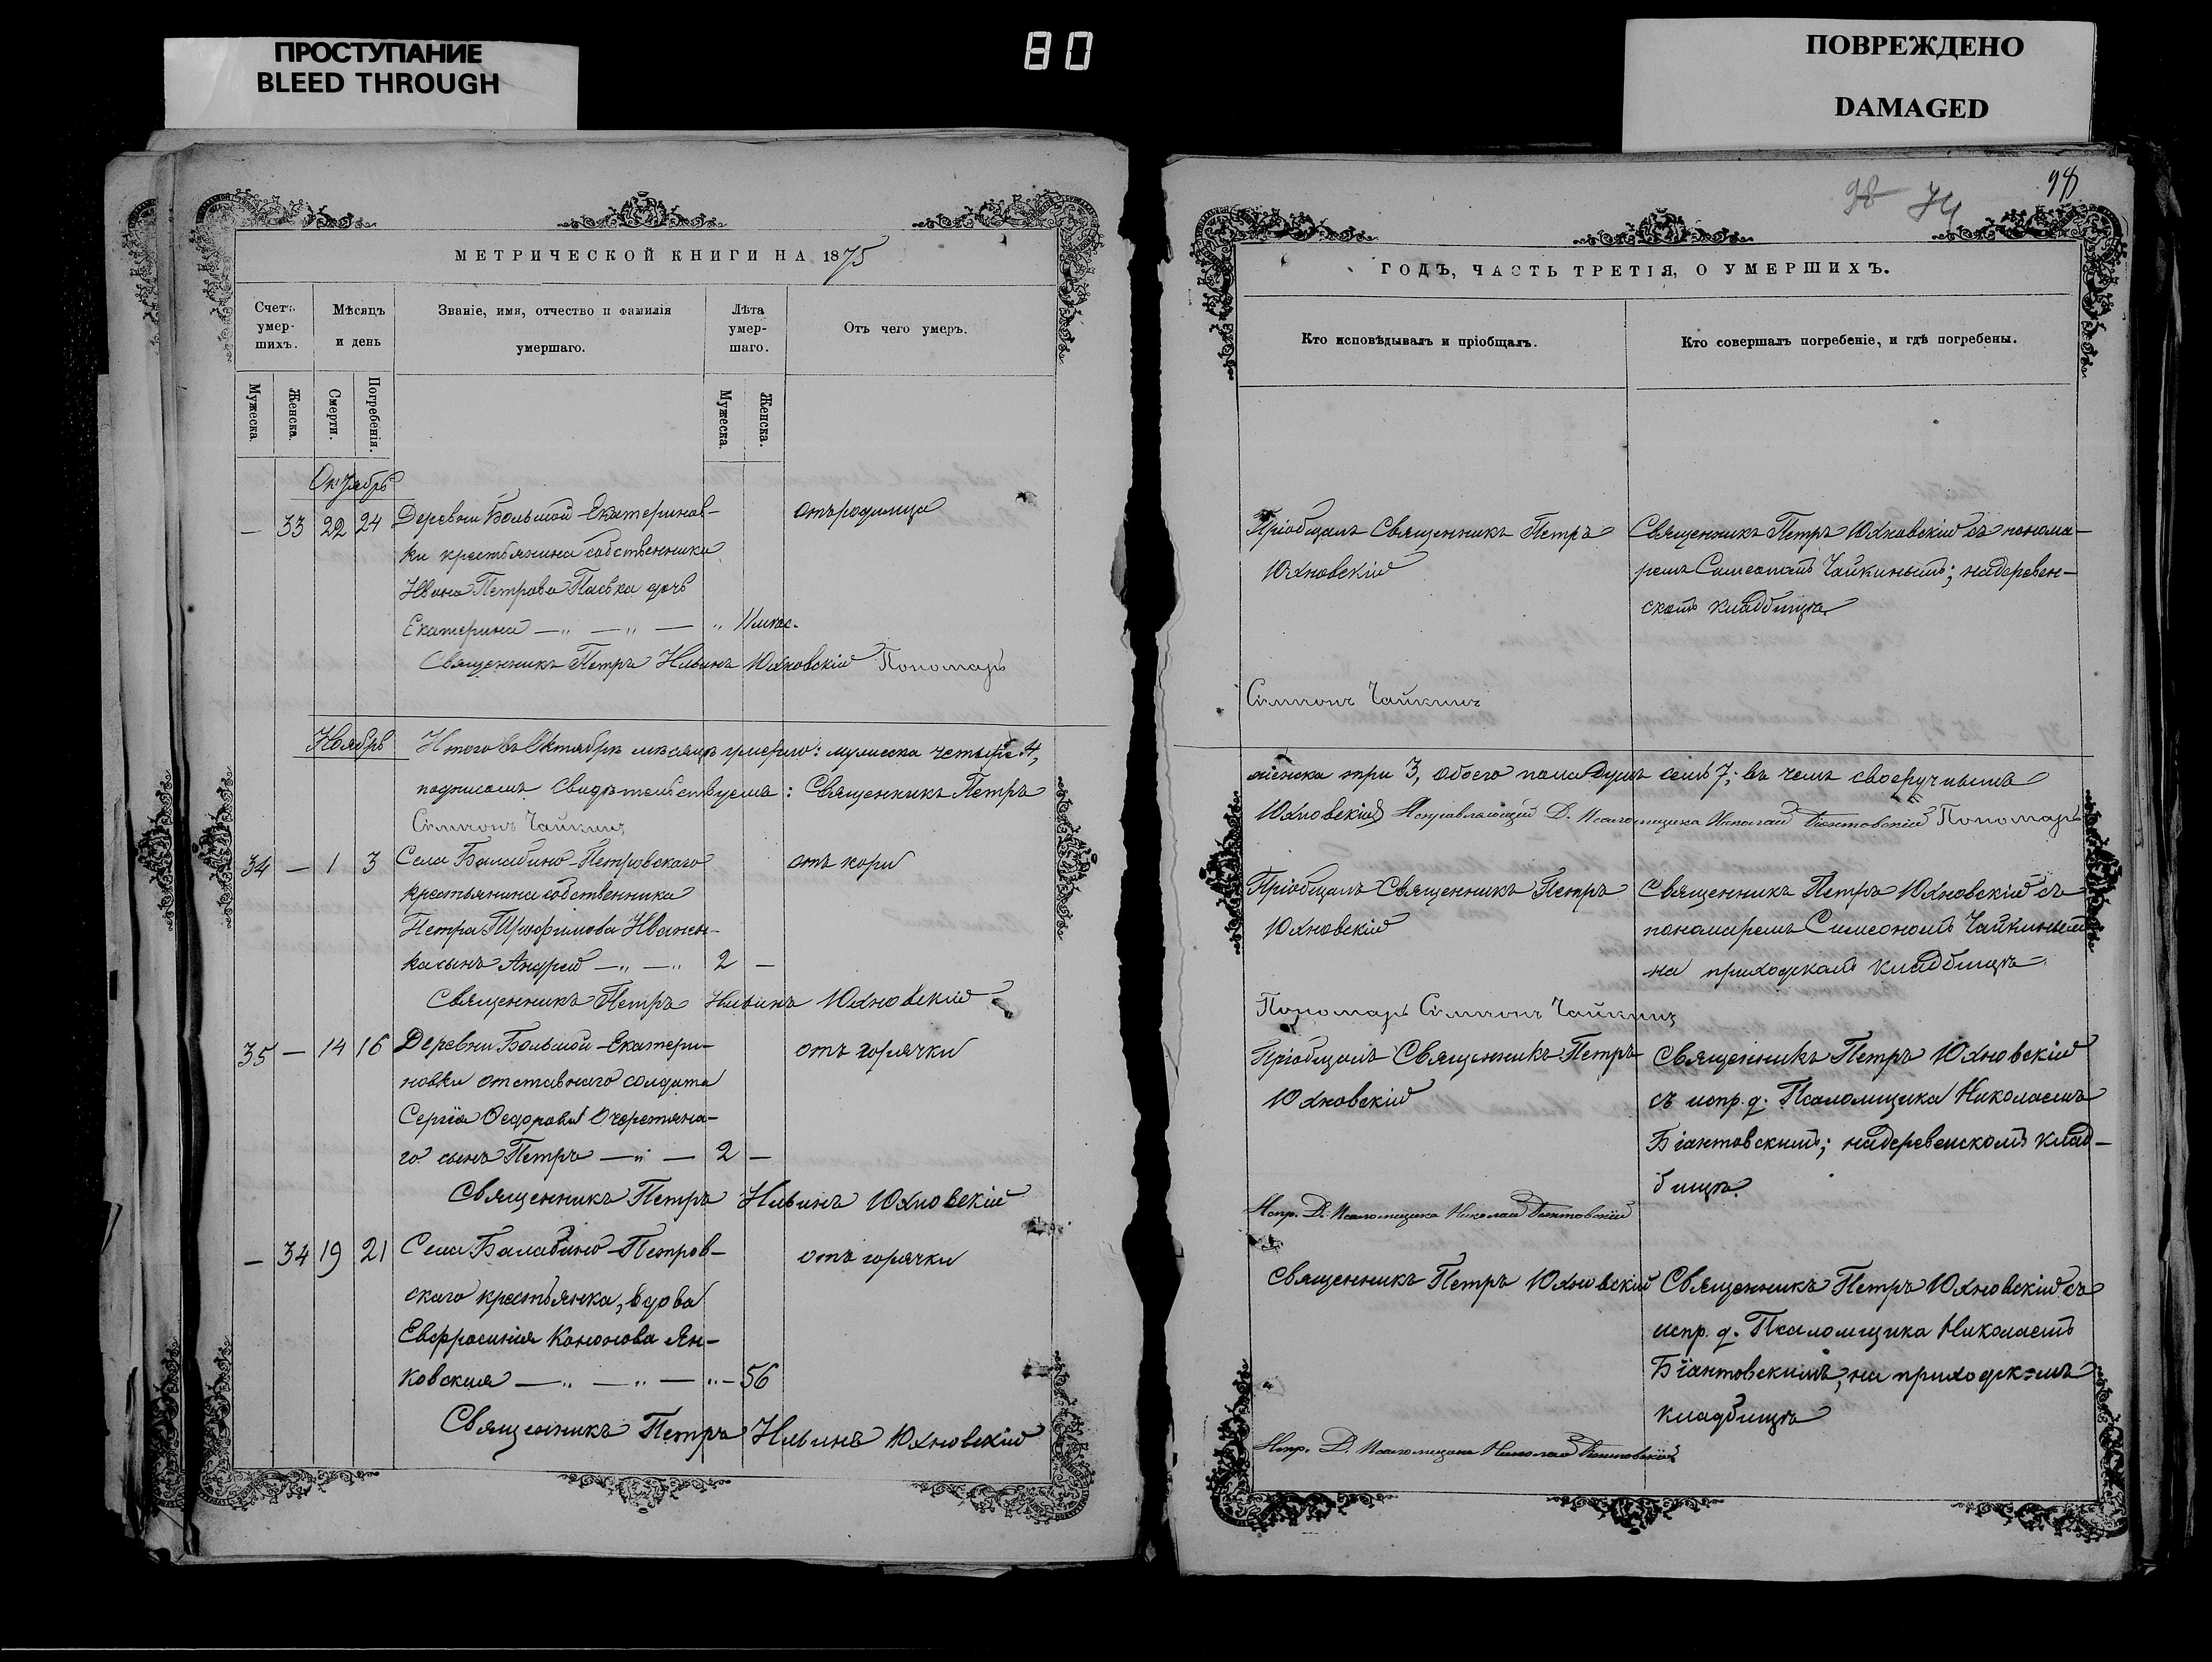 ПРОСТУПАНИЕ
BLEED THROUGH
80
ПОВРЕЖДЕНО
DAMAGED
МЕТРИЧЕСКОЙ КНИГИ НА 1875
Счетъ умер-шихъ.
Мѣсяцъ и день
Званіе, имя, отчество и фамилія умершаго.
Лѣта умер-шаго.
Отъ чего умеръ.
Мужеска.
Женска.
Смерти.
Погребенія.
Мужеска.
Женска.
Октябрь
— 33 22 24 Деревни Большой-Екатеринов-
ки крестьянина собственника
Ивана Петрова Паська дочь
Екатерина — „ — „ — „ 11 мѣс.
отъ родимца
Священникъ Петръ Ильинъ Юхновскій Пономарь
Ноябрь
Итого въ Октябрѣ мѣсяцѣ умерло: мужеска четыре 4,
подписомъ свидѣтельствуемъ: Священникъ Петръ
Сѵмеонъ Чайкинъ
34 — 1 3 Села Балабино-Петровскаго
крестьянина собственника
Петра Трофимова Иванен-
ка сынъ Андрей — „ — „ 2 —
отъ кори
Священникъ Петръ Ильинъ Юхновскій
35 — 14 16 Деревни Большой-Екатери-
новки отставнаго солдата
Сергія Ѳедорова Очеретяна-
го сынъ Петръ — „ — 2 —
отъ горячки
Священникъ Петръ Ильинъ Юхновскій
— 34 19 21 Села Балабино-Петров-
скаго крестьянка, вдова
Евфросинія Кононова Ян-
ковская — „ — „ — „ — 56
отъ горячки
Священникъ Петръ Ильинъ Юхновскій
98 74
98
ГОДЪ, ЧАСТЬ ТРЕТІЯ, О УМЕРШИХЪ.
Кто исповѣдывалъ и пріобщалъ.
Кто совершалъ погребеніе, и гдѣ погребены.
Пріобщалъ Священникъ Петръ
Юхновскій
Священникъ Петръ Юхновскій съ понома-
ремъ Симеономъ Чайкинымъ; на деревен-
скомъ кладбищѣ
Сѵмеонъ Чайкинъ
женска три 3, обоего пола душъ семь 7; въ чемъ своеручнымъ
Юхновскій Исправляющій Д. Псаломщика Николай Біантовскій Пономарь
Пріобщалъ Священникъ Петръ
Юхновскій
Священникъ Петръ Юхновскій съ
пономаремъ Симеономъ Чайкинымъ
на приходскомъ кладбищѣ
Пономарь Сѵмеонъ Чайкинъ
Пріобщалъ Священникъ Петръ
Юхновскій
Священникъ Петръ Юхновскій
съ испр. д. Псаломщика Николаемъ
Біантовскимъ; на деревенскомъ клад-
бищѣ.
Испр. Д. Псаломщика Николай Біантовскій
Священникъ Петръ Юхновскій
Священникъ Петръ Юхновскій съ
испр. д. Псаломщика Николаемъ
Біантовскимъ, на приходскомъ
кладбищѣ
Испр. Д. Псаломщика Николай Біантовскій